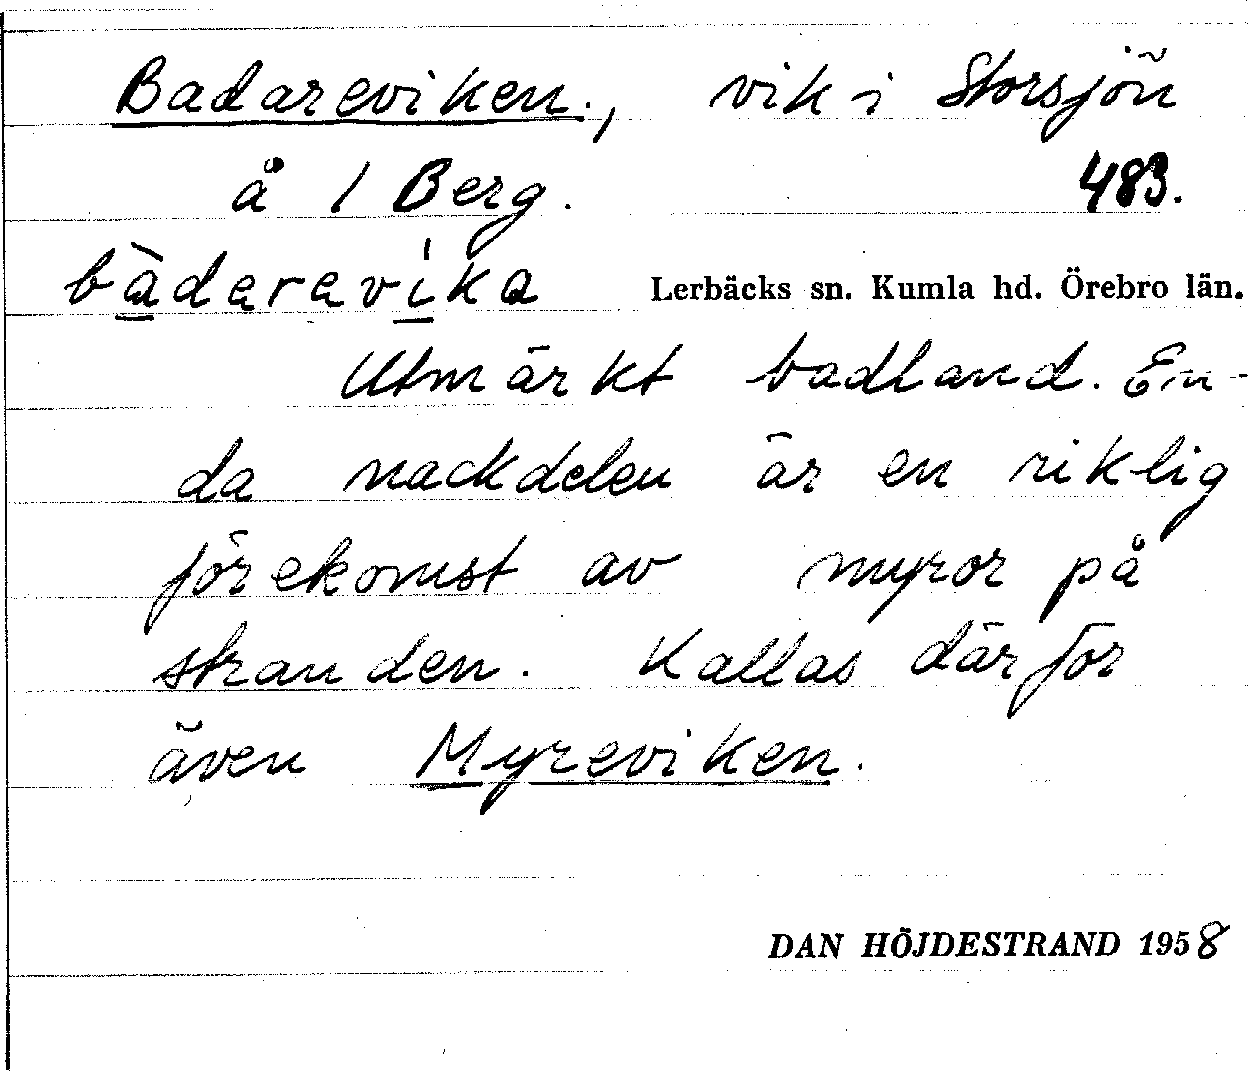 Badareviken., vik i Storsjön
å 1 Berg. 483.
bàdaravíka Lerbäcks sn. Kumla hd. Örebro län.
Utmärkt badland. En-
da nackdelen är en riklig
förekomst av myror på
stranden. Kallas därför
även Myreviken.
DAN HÖJDESTRAND 1958